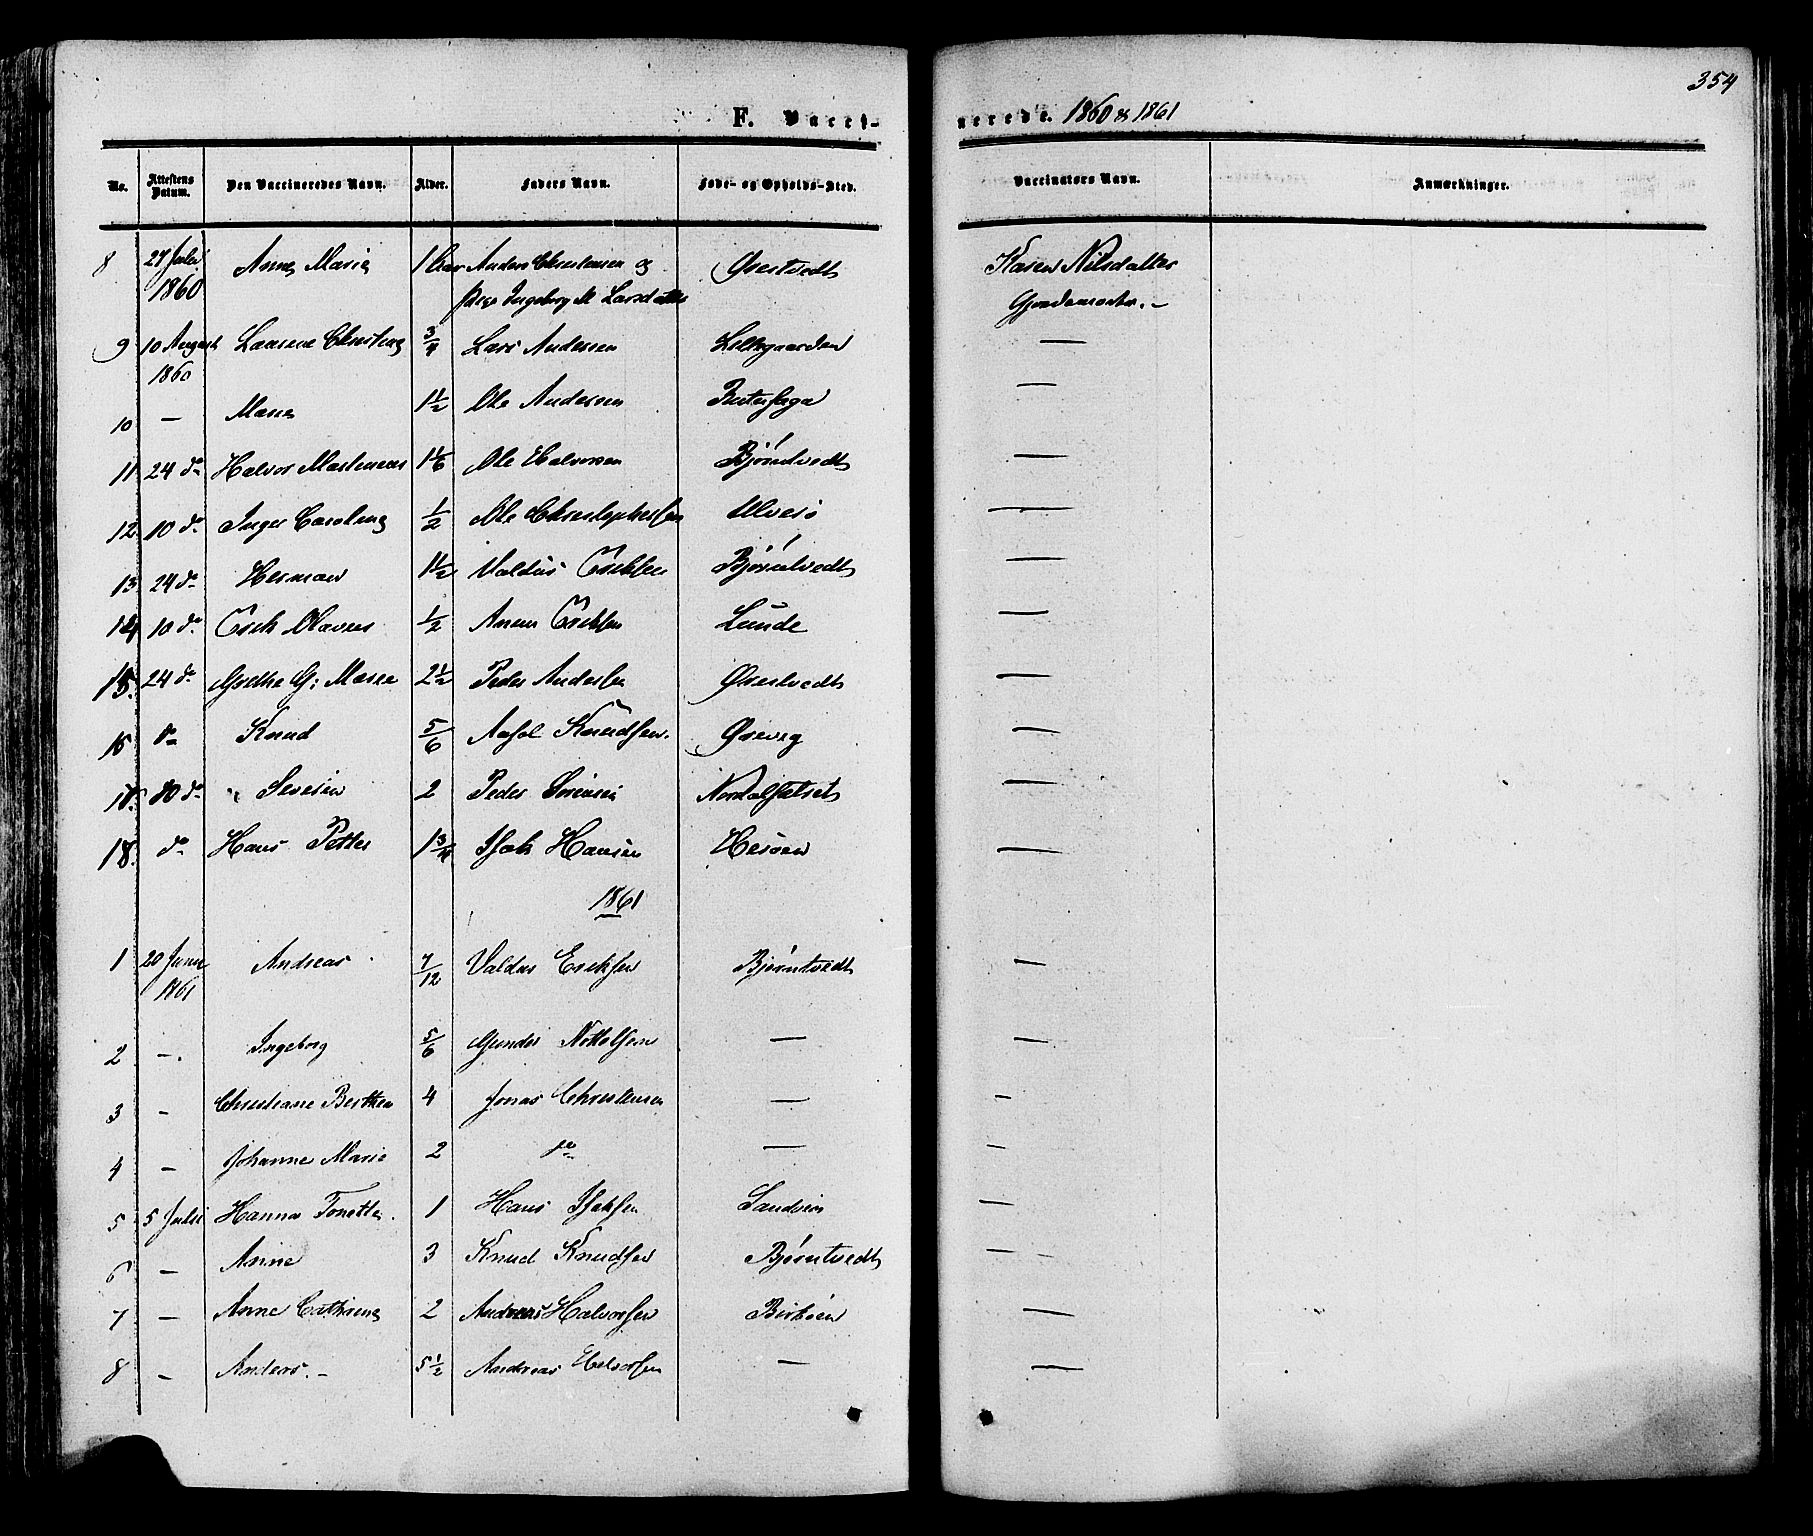 354
F. Vacci-
nerede. 1860 & 1861
No. Attestens Datum. Den Vaccineredes Navn. Alder. Faders Navn. Føde- og Opholds-Sted. Vaccinators Navn. Anmærkninger.
8 27 Juli 1860 Anne Marie 1 Aar Anders Christensen og Ørstvedt Karen Nilsdatter
Pige Ingeborg M Larsdatter Gjordemoder. –
9 10 August 1860 Laurene Christine 3/4 Lars Andersen —
10 — Maren 1 1/2 Ole Andersen —
11 24 do Halvor Martinius 1 1/6 Ole Halvorsen Bjørntvedt —
12. 10 do Inger Caroline 1/2 Ole Christophersen Ulverø —
13 24 do Herman 1 1/2 Valdus Eriksen Bjørntvedt —
14 10 do Erik Olavus 1/2 Anun Eriksen Lunde —
15. 24 do Grethe G: Marie 2 1/2 Peder Andersen Ørstvedt —
16 do Knud 5/6 Knudsen. —
17. 30 do Severin 2 Peder Sørensen —
18. do Hans Petter 1 3/4 Isak Hansen Herøen —
1861
1 20 Juni 1861 Andreas 7/12 Valdus Eriksen Bjørntvedt —
2 –. Ingeborg 5/6 Gunder Nottolsen — —
3 – Christiane Berthea 4 Jonas Christensen — –
4 – Johanne Marie 2 do — –
5 5 Juli Hanna Tonette. 1 Hans Isaksen Sandøen —
6 – Anne 3 Knud Knudsen Bjørntvedt — –
7 – Anne Cathrine 2 Andreas Halvorsen Birkøen —
8 – Anders. – 5 1/2 Andreas Halvorsen — —